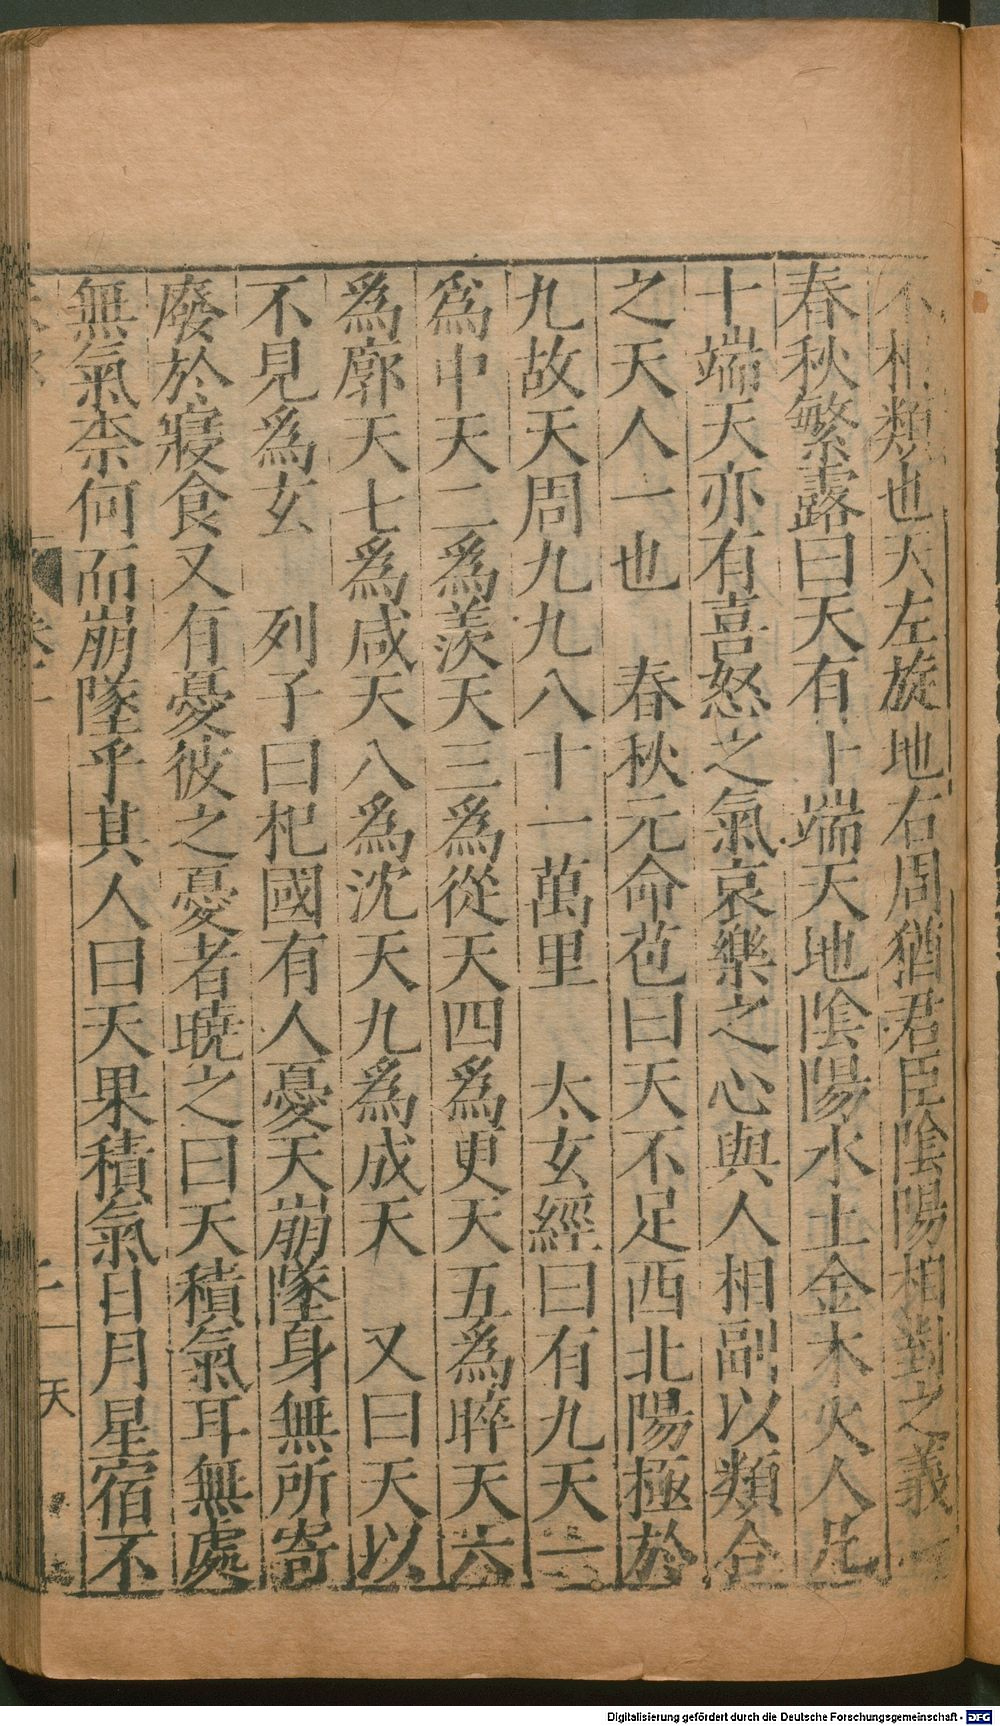 不相類也天左旋地右周猶君臣陰陽相對之義
春秋繁露曰天有十端天地陰陽水土金木火人凡
十端天亦有喜怒之氣哀樂之心與人相副以類合
之天人一也　春秋元命苞曰天不足西北陽極於
九故天周九九八十一萬里　太玄經曰有九天一
爲中天二爲羨天三爲從天四爲更天五爲晬天六
爲廓天七爲咸天八爲沈天九爲成天　又曰天以
不見爲玄　列子曰杞國有人憂天崩墜身無所寄
廢於寢食又有憂彼之憂者曉之曰天積氣耳無處
無氣柰何而崩墜乎其人曰天果積氣日月星宿不
天
Digitalisierung gefördert durch die Deutsche Forschungsgemeinschaft - DFG